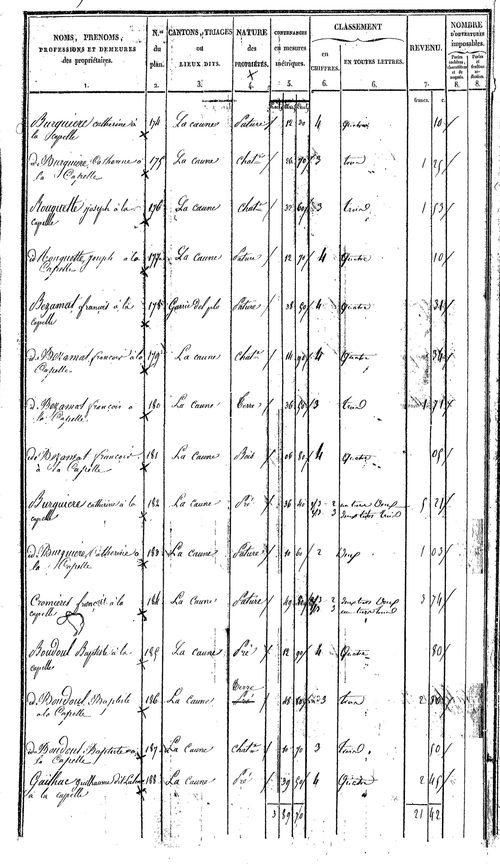 NOMS, PRÉNOMS,
PROFESSIONS ET DEMEURES
des propriétaires.
1.
N.os
du
plan.
2.
CANTONS, TRIAGES
ou
LIEUX DITS.
3.
NATURE
des
PROPRIÉTÉS.
4.
CONTENANCES
en mesures
métriques.
5.
CLASSEMENT
en
CHIFFRES.
6.
EN TOUTES LETTRES.
6.
REVENU.
7.
francs. c.
NOMBRE
D'OUVERTURES
imposables.
8. 8.
Burguiere catherine à 174 La caune Pature 12 20 4 quatre 10
la Capelle
d. Burguiere Catherine a 175 La caune chat.ie 26 70 3 trois 1 25
la Capelle
Rouquette joseph à la 176 La caune chat.ie 32 60 3 trois 1 53
capelle
d. Rouquette joseph à la 177 La caune Pature 12 70 4 Quatre 10
Capelle
Bezamat françois à la 178 Pature 38 50 4 quatre 31
capelle
d. Bezamat francois à la 179 La caune chat.ie 14 90 4 Quatre 36
Capelle.
d. Bezamat françois a 180 La Caune Terre 36 50 3 trois 1 71
la Capelle.
d. Bezamat francois 181 La Caune Bois 06 80 4 Quatre 05
à la Capelle
Burguiere catherine à la 182 La Caune Pré 36 40 1/3 - 2 un tiers Deux 5 21
capelle 2/3 3 deux tiers trois
d. Burguiere Catherine a 183 La Caune Pature 10 60 2 Deux 1 03
la Capelle
Cromières françois à la 184 La Caune Pature 49 2/3 - 2 deux tiers Deux 3 74
capelle 1/3 3 un tiers trois
Boudout Baptiste à la 185 La caune Pré 12 90 4 Quatre 80
capelle
Terre
d. Boudout Baptiste 186 La Caune Pré 48 80 3 trois 2
a la Capelle
d. Boudout Baptiste a 187 La Caune chat.ie 10 70 3 trois 50
la Capelle
Gailhac Guilhaume dit 188 La Caune Pré 39 50 4 Quatre 2 45
à la capelle
3 89 70 21 42